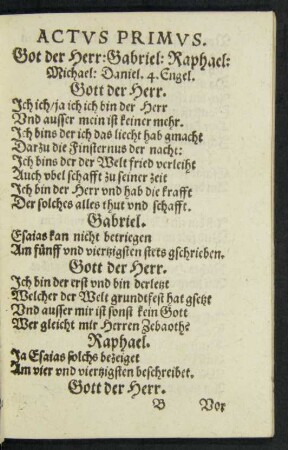 ACTVS PRIMVS.
Got der Herr: Gabriel: Raphael:
Michael: Daniel. 4. Engel.
Gott der Herr.
Ich ich / ja ich ich bin der Herr
Vnd ausser mein ist keiner mehr.
Ich bins der ich das liecht hab gmacht
Darzu die Finsternus der nacht:
Ich bins der der Welt fried verleiht
Auch vbel schafft zu seiner zeit
Ich bin der Herr vnd hab die krafft
Der solches alles thut vnd schafft.
Gabriel.
Esaias kan nicht betriegen
Am fünff vnd viertzigsten stets gschrieben.
Gott der Herr.
Ich bin der erst vnd bin der letzt
Welcher der Welt grundtfest hat gsetzt
Vnd ausser mir ist sonst kein Gott
Wer gleicht mir Herren Zebaoth?
Raphael.
Ja Esaias solchs bezeiget
Am vier vnd viertzigsten beschreibet.
Gott der Herr.
B Vor